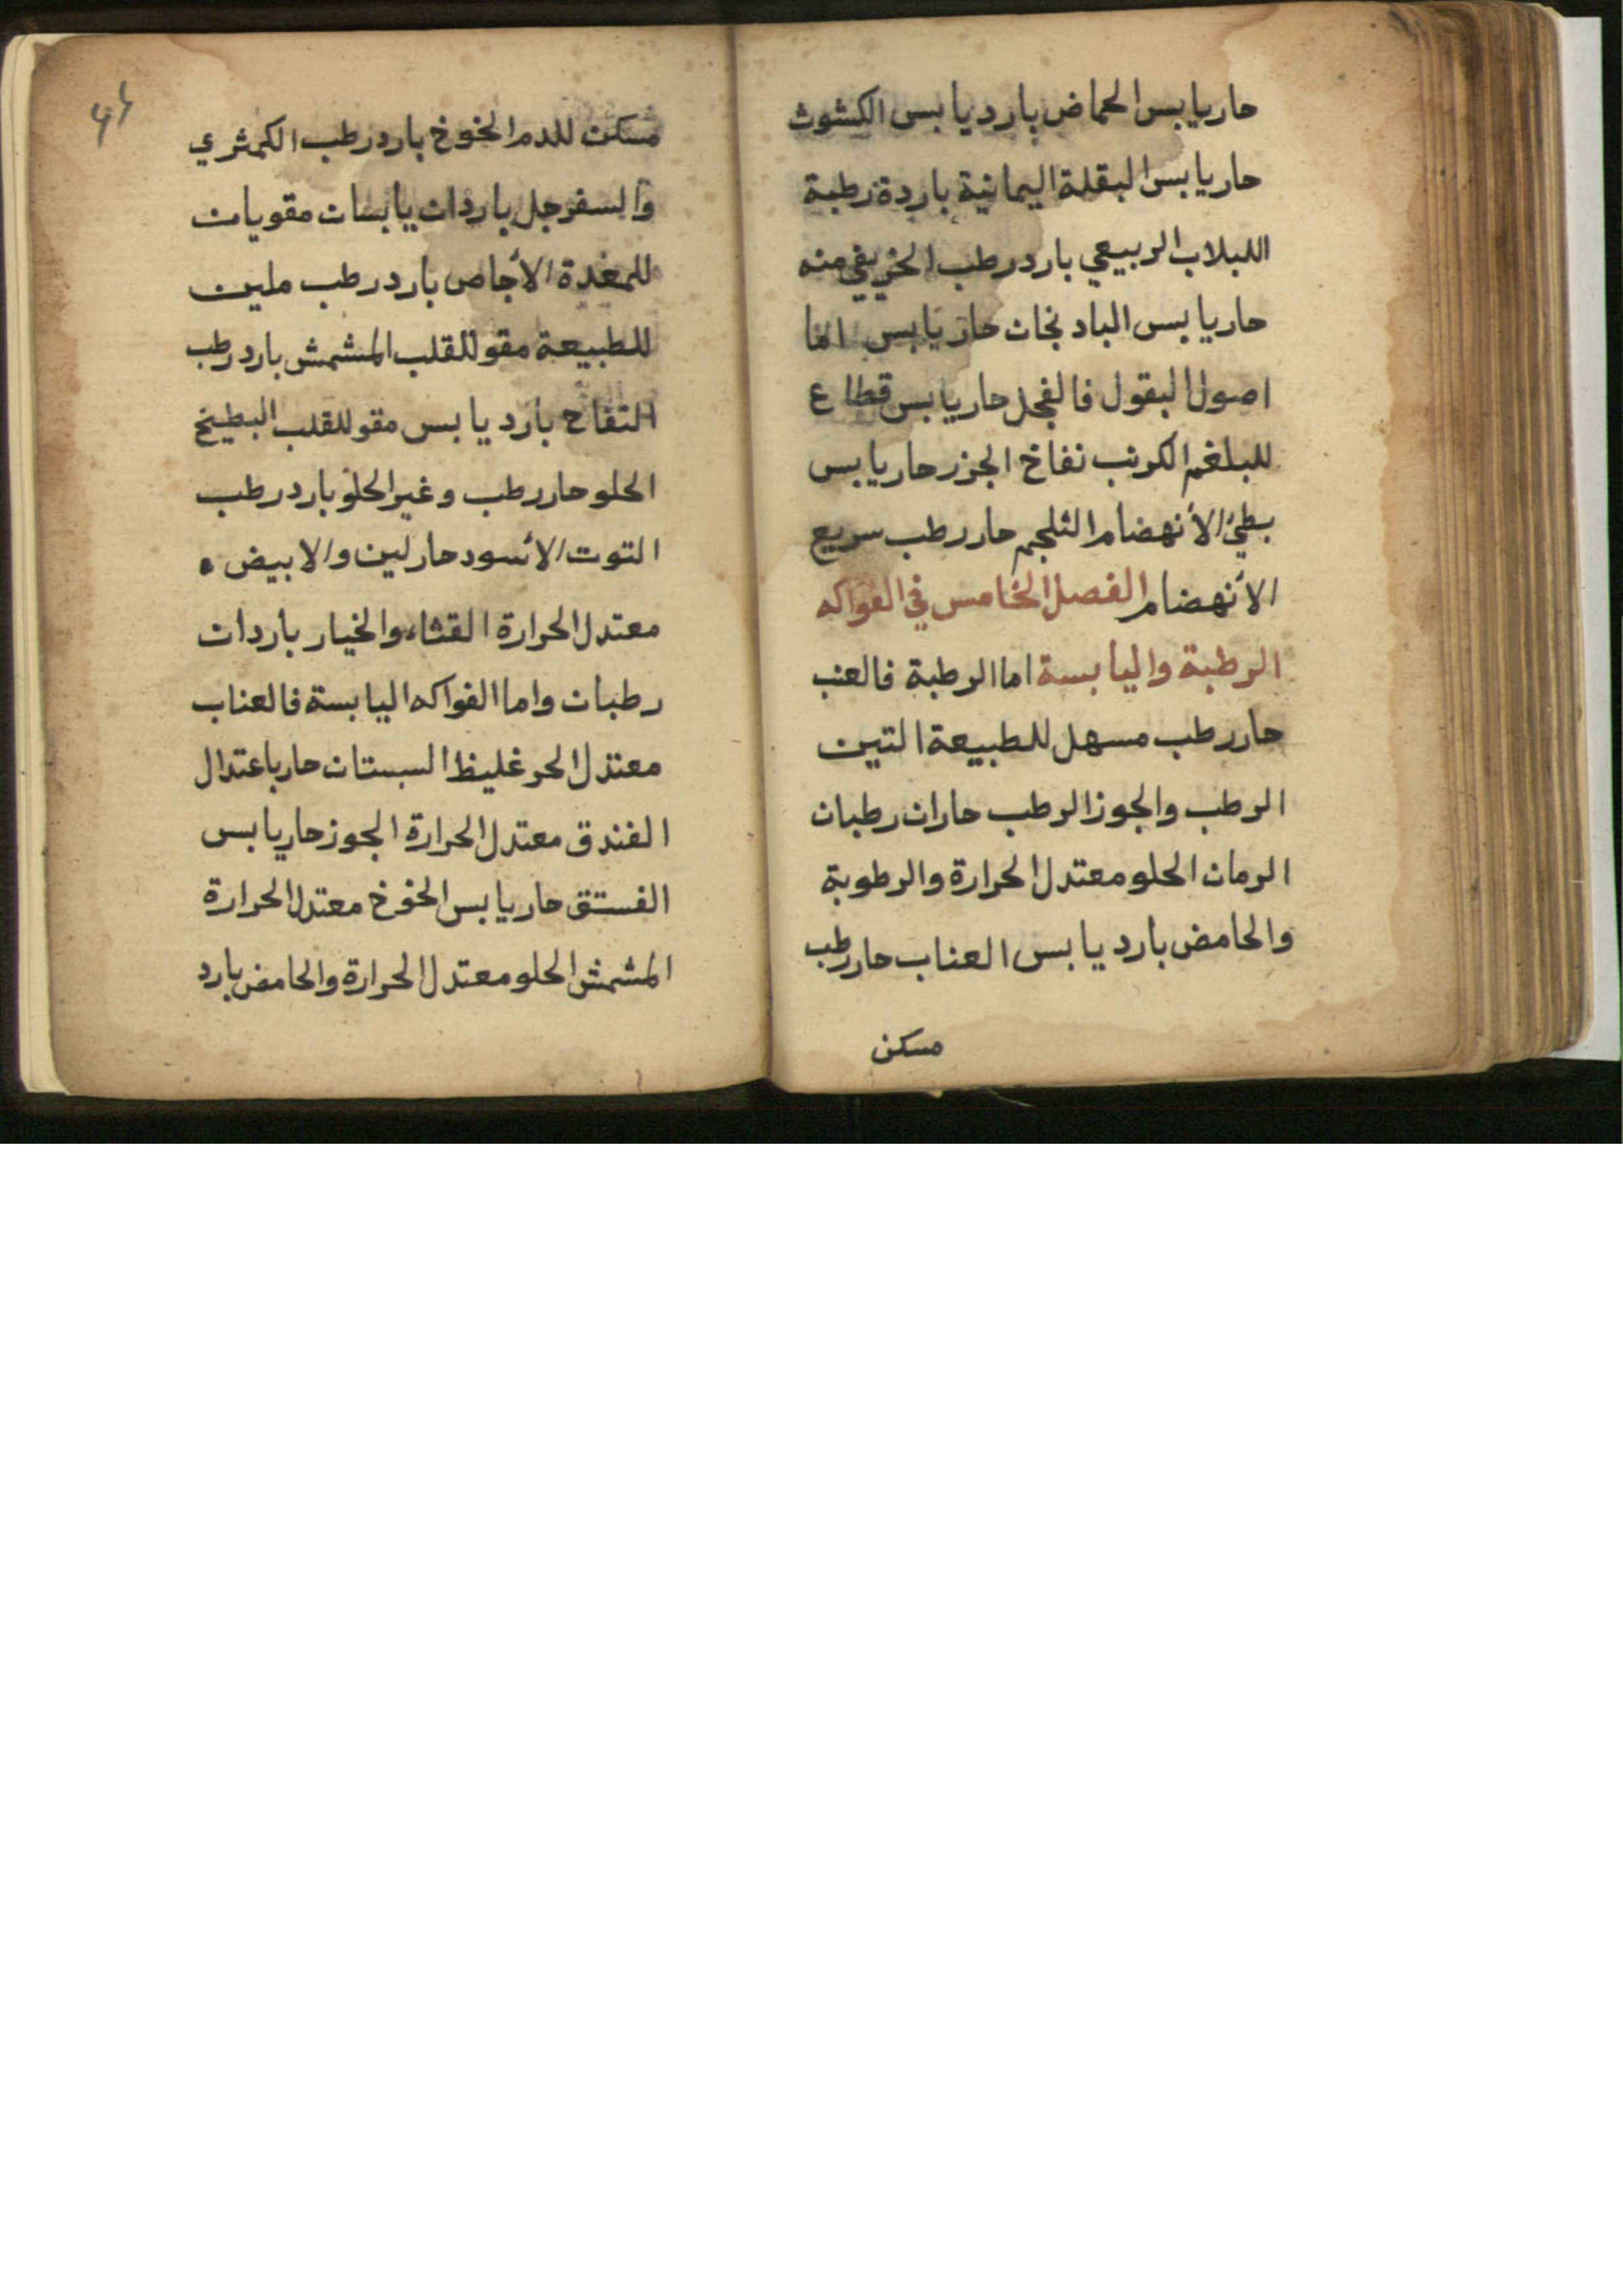 حار يابس الحماض بارد يابس الكشوث
حار يابس البقلة اليمانية باردة رطبة
اللبلاب الربيعي بارد رطب الخريفي منه
حار يابس الباد نجان حار يابس اما
اصول البقول فالفجل حار يابس قطاع
للبلغم الكرنب نفاخ الجزر حار يابس
بطئ الأنهضام الثلجم حار رطب سريع
الأنهضام الفصل الخامس في الفواكه
الرطبة واليابسة اما الرطبة فالعنب
حار رطب مسهل للطبيعة التين
الرطب والجوز الرطب حاران رطبان
الرمان الحلو معتدل الحرارة والرطوبة
والحامض بارد يابس العناب حار رطب
مسكن
مسكن للدم الخوخ بارد رطب الكمثري
والسفرجل باردان يابسان مقويان
للمعدة الأجاص بارد رطب ملين
للطبيعة مقو للقلب المشمش بارد رطب
التفاح بارد يابس مقو للقلب البطيخ
الحلو حار رطب وغير الحلو بارد رطب
التوت الأسود حار لين والابيض
معتدل الحرارة القثاء والخيار باردان
رطبان واما الفواكه اليابسة فالعناب
معتدل الحر غليظ السبستان حار باعتدال
الفندق معتدل الحرارة الجوز حار يابس
الفستق حار يابس الخوخ معتدل الحرارة
المشمش الحلو معتدل الحرارة والحامض بارد